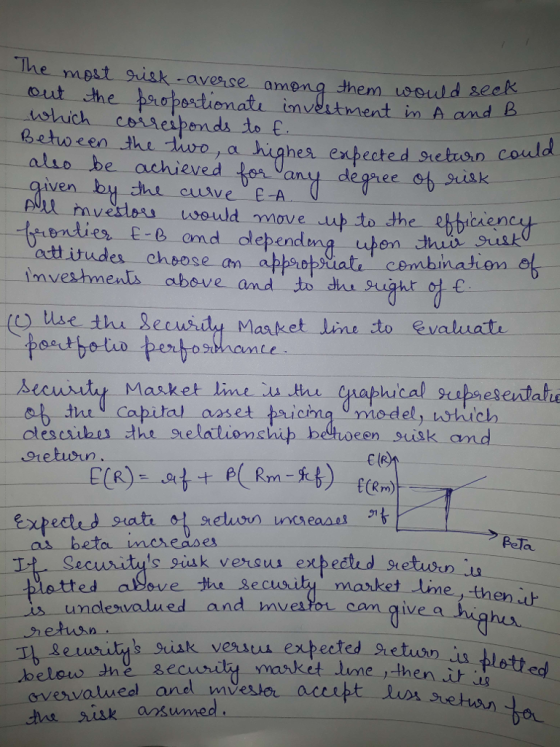 The most risk-averse among them would seek
out the proportionate investment in A and B
which corresponds to E.
Between the two, a higher expected return could
also be achieved for any degree of risk
given by the curve E-A.
All investors would move up to the efficiency
frontier E-B and depending upon their risk
attitudes choose an appropriate combination of
investments above and to the right of E.
(C) Use the Security Market line to Evaluate
portfolio performance.
Security Market line is the graphical representati
of the capital asset pricing model, which
describes the relationship between risk and
return.
E(R) = rf + β(Rm - rf)
E(R)
E(Rm)
rf
Beta
Expected rate of return increases
as beta increases
If Security's risk versus expected return is
plotted above the security market line, then it
is undervalued and investor can give a higher
return.
If Security's risk versus expected return is plotted
below the security market line, then it is
overvalued and investor accept less return for
the risk assumed.